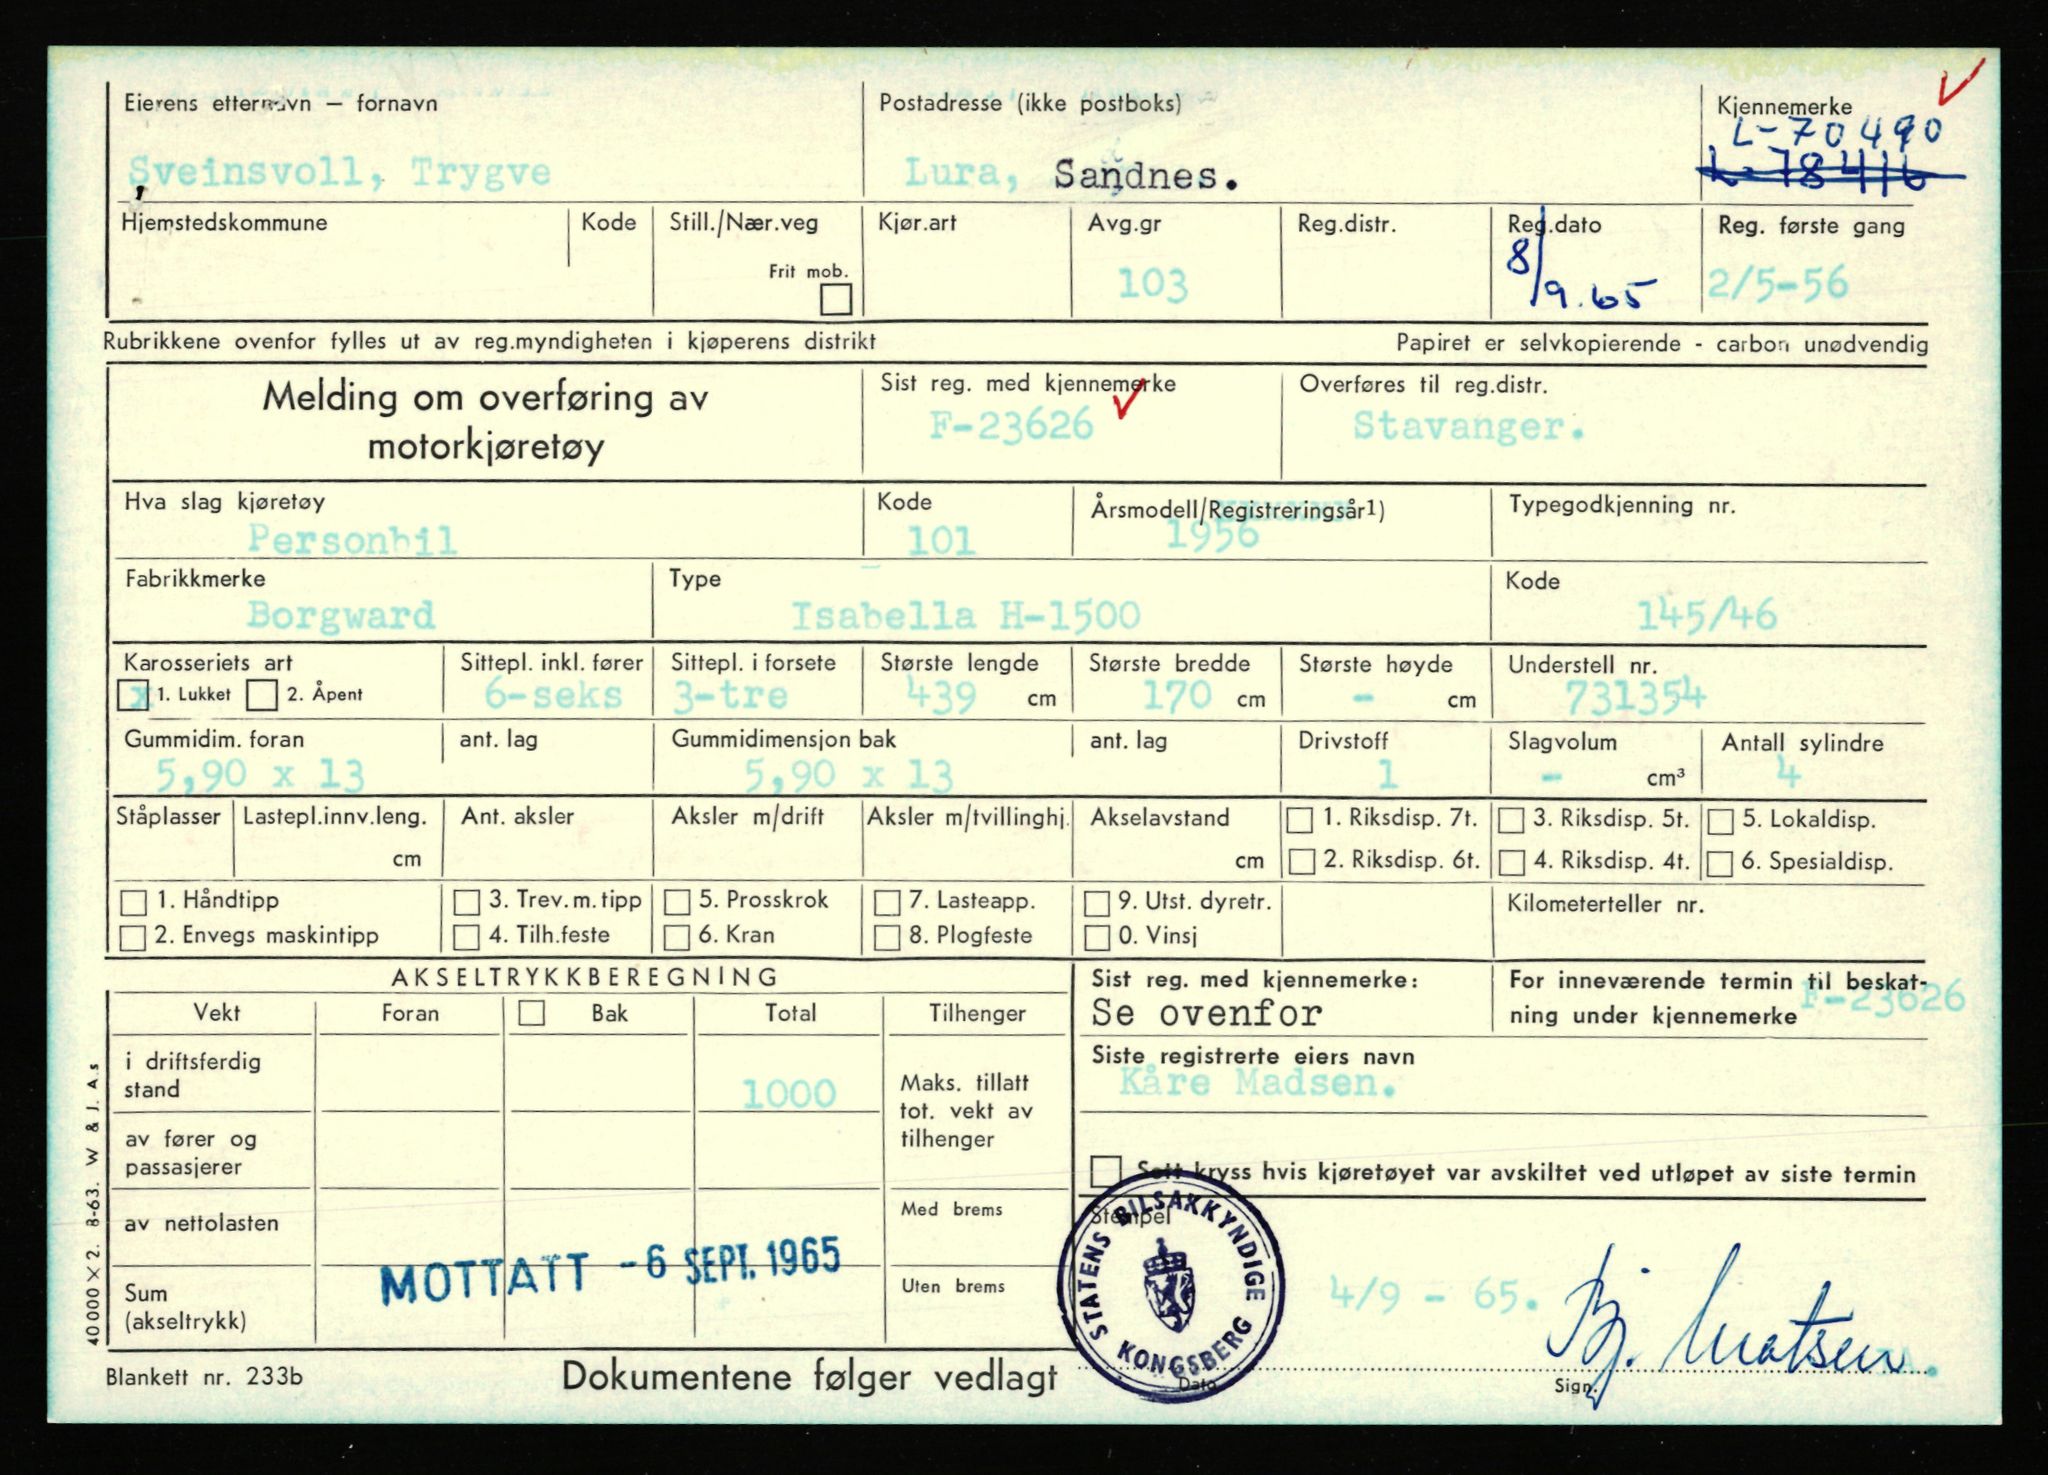 Eierens etternavn — fornavn
Sveinsvoll, Trygve
Postadresse (ikke postboks)
Lura, Sandnes.
Kjennemerke
L-70490
L-78416
Hjemstedskommune
Kode
Still./Nær.veg
Frit mob.
Kjør.art
Avg.gr
103
Reg.distr.
Reg.dato
8/9.65
Reg. første gang
2/5-56
Rubrikkene ovenfor fylles ut av reg.myndigheten i kjøperens distrikt
Papiret er selvkopierende - carbon unødvendig
Melding om overføring av
motorkjøretøy
Sist reg. med kjennemerke
F-23626
Overføres til reg.distr.
Stavanger.
Hva slag kjøretøy
Personbil
Kode
101
Årsmodell/Registreringsår1)
1956
Typegodkjenning nr.
Fabrikkmerke
Borgward
Type
Isabella H-1500
Kode
145/46
Karosseriets art
x 1. Lukket 2. Åpent
Sittepl. inkl. fører
6-seks
Sittepl. i forsete
3-tre
Største lengde
439 cm
Største bredde
170 cm
Største høyde
- cm
Understell nr.
731354
Gummidim. foran
5,90 x 13
ant. lag
Gummidimensjon bak
5,90 x 13
ant. lag
Drivstoff
1
Slagvolum
- cm³
Antall sylindre
4
Ståplasser
Lastepl.innv.leng.
cm
Ant. aksler
Aksler m/drift
Aksler m/tvillinghj.
Akselavstand
cm
1. Riksdisp. 7t.
2. Riksdisp. 6t.
3. Riksdisp. 5t.
4. Riksdisp. 4t.
5. Lokaldisp.
6. Spesialdisp.
1. Håndtipp
2. Envegs maskintipp
3. Trev.m.tipp
4. Tilh.feste
5. Prosskrok
6. Kran
7. Lasteapp.
8. Plogfeste
9. Utst. dyretr.
0. Vinsj
Kilometerteller nr.
AKSELTRYKKBEREGNING
Vekt
Foran
Bak
Total
Tilhenger
i driftsferdig
stand
1000
Maks. tillatt
tot. vekt av
tilhenger
av fører og
passasjerer
av nettolasten
Med brems
Sum
(akseltrykk)
Uten brems
MOTTATT - 6 SEPT. 1965
Sist reg. med kjennemerke:
Se ovenfor
For inneværende termin til beskat-
ning under kjennemerke F-23626
Siste registrerte eiers navn
Kåre Madsen.
Sett kryss hvis kjøretøyet var avskiltet ved utløpet av siste termin
Stempel
STATENS BILSAKKYNDIGE
KONGSBERG
4/9 - 65.
Bj. Matsen
Dato
Sign.
40 000 x 2. 8-63. W & J. A.s
Blankett nr. 233b
Dokumentene følger vedlagt